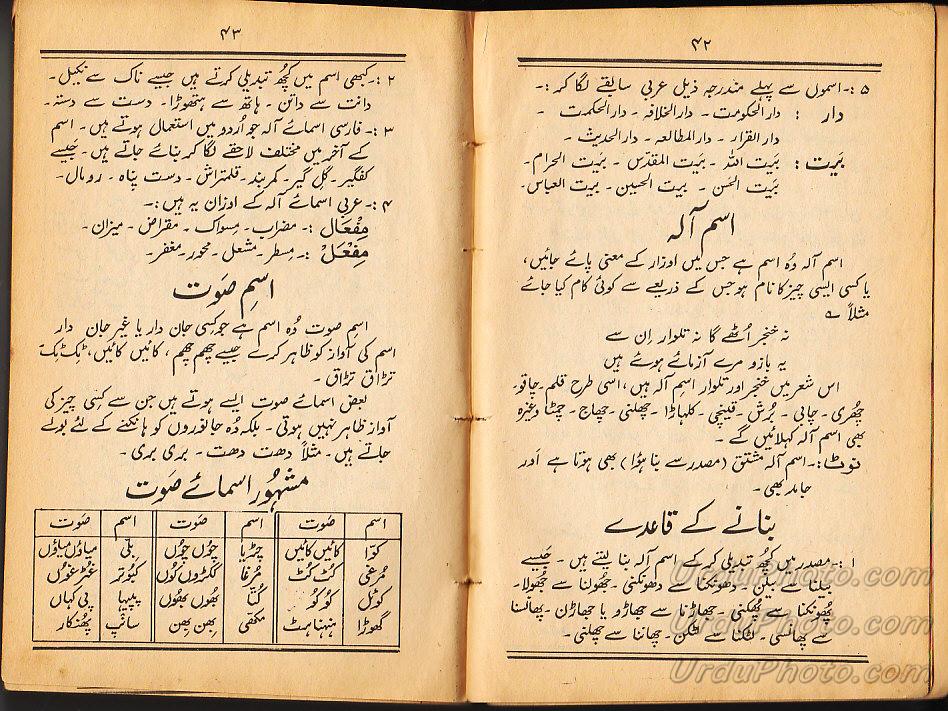 ۴۲
۵ :۔ اسموں سے پہلے مندرجہ ذیل عربی سابقے لگا کر :۔
دار : دارالحکومت ۔ دارالخلافہ ۔ دارالحکمت ۔
دارالقرار ۔ دارالمطالعہ ۔ دارالحدیث ۔
بَیت : بَیت اللہ ۔ بَیت المقدس ۔ بَیت الحرام ۔
بَیت الحَسن ۔ بیت الحسین ۔ بیت العباس ۔
اسم آلہ
اسم آلہ وُہ اسم ہے جس میں اوزار کے معنی پائے جائیں ،
یا کسی ایسی چیز کا نام ہو جس کے ذریعے سے کوئی کام کیا جائے
مثلاً ؎
نہ خنجر اُٹھے گا نہ تلوار اِن سے
یہ بازو مرے آزمائے ہوئے ہیں
اس شعر میں خنجر اور تلوار اسم آلہ ہیں ، اسی طرح قلم ۔ چاقو ۔
چُھری ۔ چابی ۔ بُرش ۔ قینچی ۔ کلہاڑا ۔ چھلنی ۔ چھاج ۔ چمٹا وغیرہ
بھی اسم آلہ کہلائیں گے ۔
نوٹ :۔ اسم آلہ مشتق (مصدر سے بنا ہؤا) بھی ہوتا ہے اَور
جامد بھی ۔
بنانے کے قاعدے
۱ :۔ مصدر میں کُچھ تبدیلی کر کے اسم آلہ بنا لیتے ہیں ۔ جَیسے
بیلنا سے بیلن ۔ دھونکنا سے دھونکنی ۔ جُھولنا سے جُھولا ۔
پُھونکنا سے پُھکنی ۔ جھاڑنا سے جھاڑو یا جھاڑن ۔ پھانسنا
سے پھانسی ۔ لٹکنا سے لٹکن ۔ چھاننا سے چھلنی ۔
۴۳
۲ :۔ کبھی اسم میں کُچھ تبدیلی کرتے ہیں جَیسے ناک سے نکیل ۔
دانت سے داتن ۔ ہاتھ سے ہتھوڑا ۔ دست سے دستہ ۔
۳ :۔ فارسی اسمائے آلہ جو اُردو میں استعمال ہوتے ہیں ۔ اسم
کے آخر میں مختلف لاحقے لگا کر بنائے جاتے ہیں ۔ جَیسے
کفگیر ۔ گل گیر ۔ کمر بند ۔ قلمتراش ۔ دست پناہ ۔ رومال ۔
۴ :۔ عربی اسمائے آلہ کے اوزان یہ ہیں :۔
مِفْعَال :۔ مضراب ۔ مسواک ۔ مقراض ۔ میزان ۔
مِفْعَلْ :۔ مِسطر ۔ مشعل ۔ محور ۔ مغفر ۔
اسمِ صَوت
اسمِ صوت وُہ اسم ہے جو کِسی جان دار یا غیر جان دار
اسم کی آواز کو ظاہر کرے جیسے چھم چھم ، کائیں کائیں ، ٹِک ٹِک
تڑاق تڑاق ۔
بعض اسمائے صوت ایسے ہوتے ہیں جن سے کِسی چیز کی
آواز ظاہر نہیں ہوتی ۔ بلکہ وُہ جانوروں کو ہانکنے کے لئے بولے
جاتے ہیں ۔ مثلاً دھت دھت ۔ ہری ہری ۔
مشہُور اسمائے صَوت
اسم صَوت اسم صَوت اسم صَوت
کوّا کائیں کائیں چڑیا چُوں چُوں بلّی میاؤں میاؤں
مُرغی کُٹ کُٹ مُرغا ککڑوں کُوں کبُوتر غٹر غُوں
کوئل کُو کُو کُتّا بھُوں بھُوں پپیہا پی کہاں
گھوڑا ہنہناہٹ مکھی بِھن بِھن سانپ پُھنکار
UrduPhoto.com
UrduPhoto.com
UrduPhoto.com